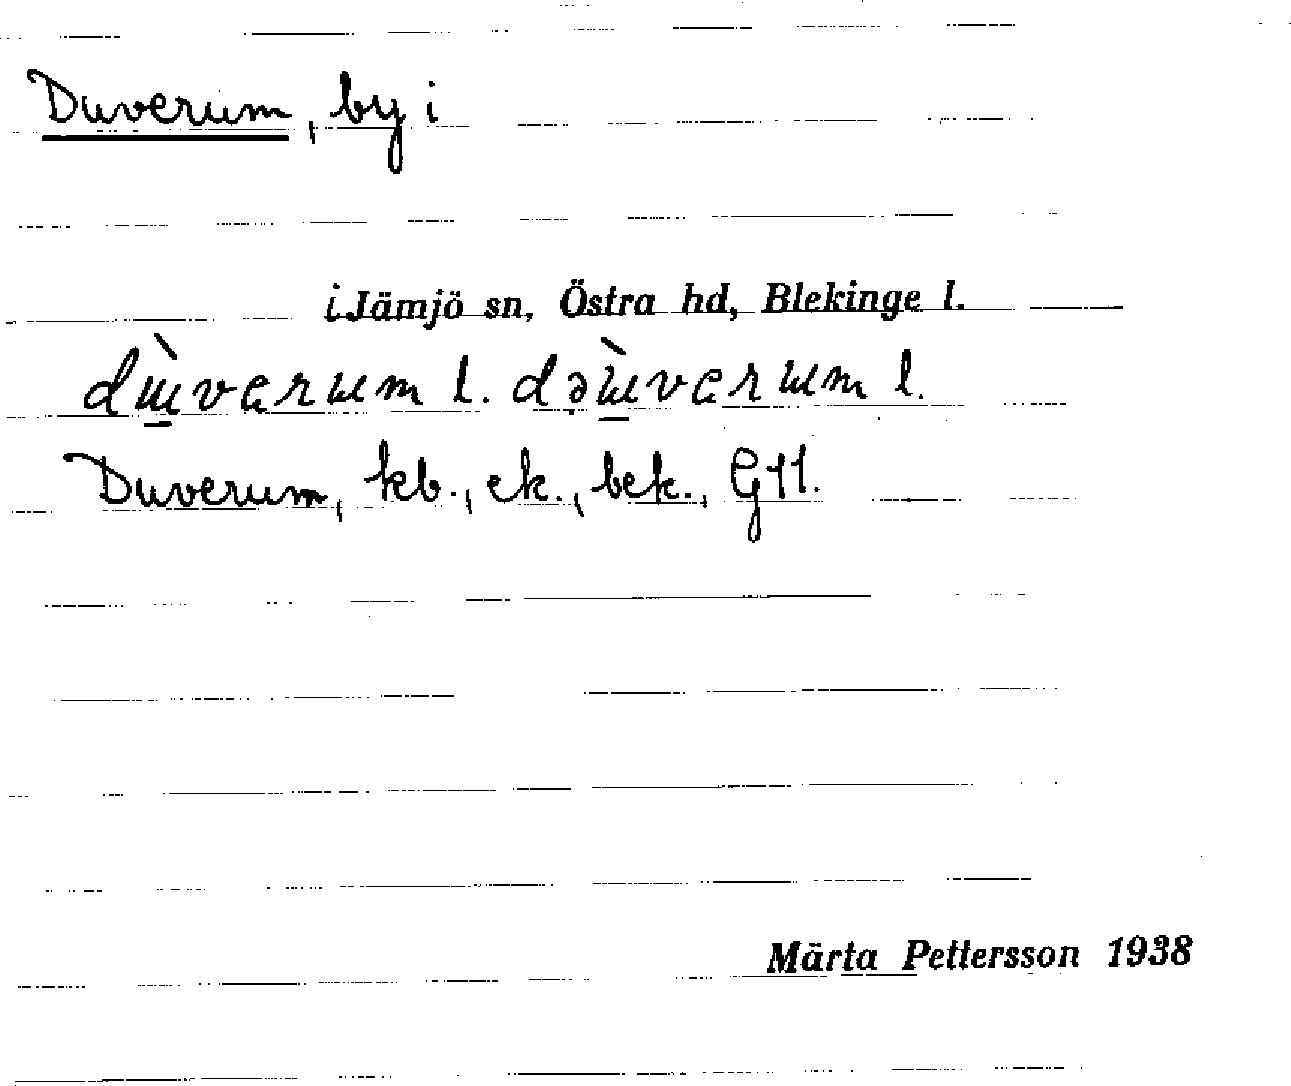 Duverum, by i
i Jämjö sn, Östra hd, Blekinge l.
dɯ̀verɯm l. dəɯ̀verɯm l.
Duverum, kb., ek., bek., G11.
Märta Pettersson 1938